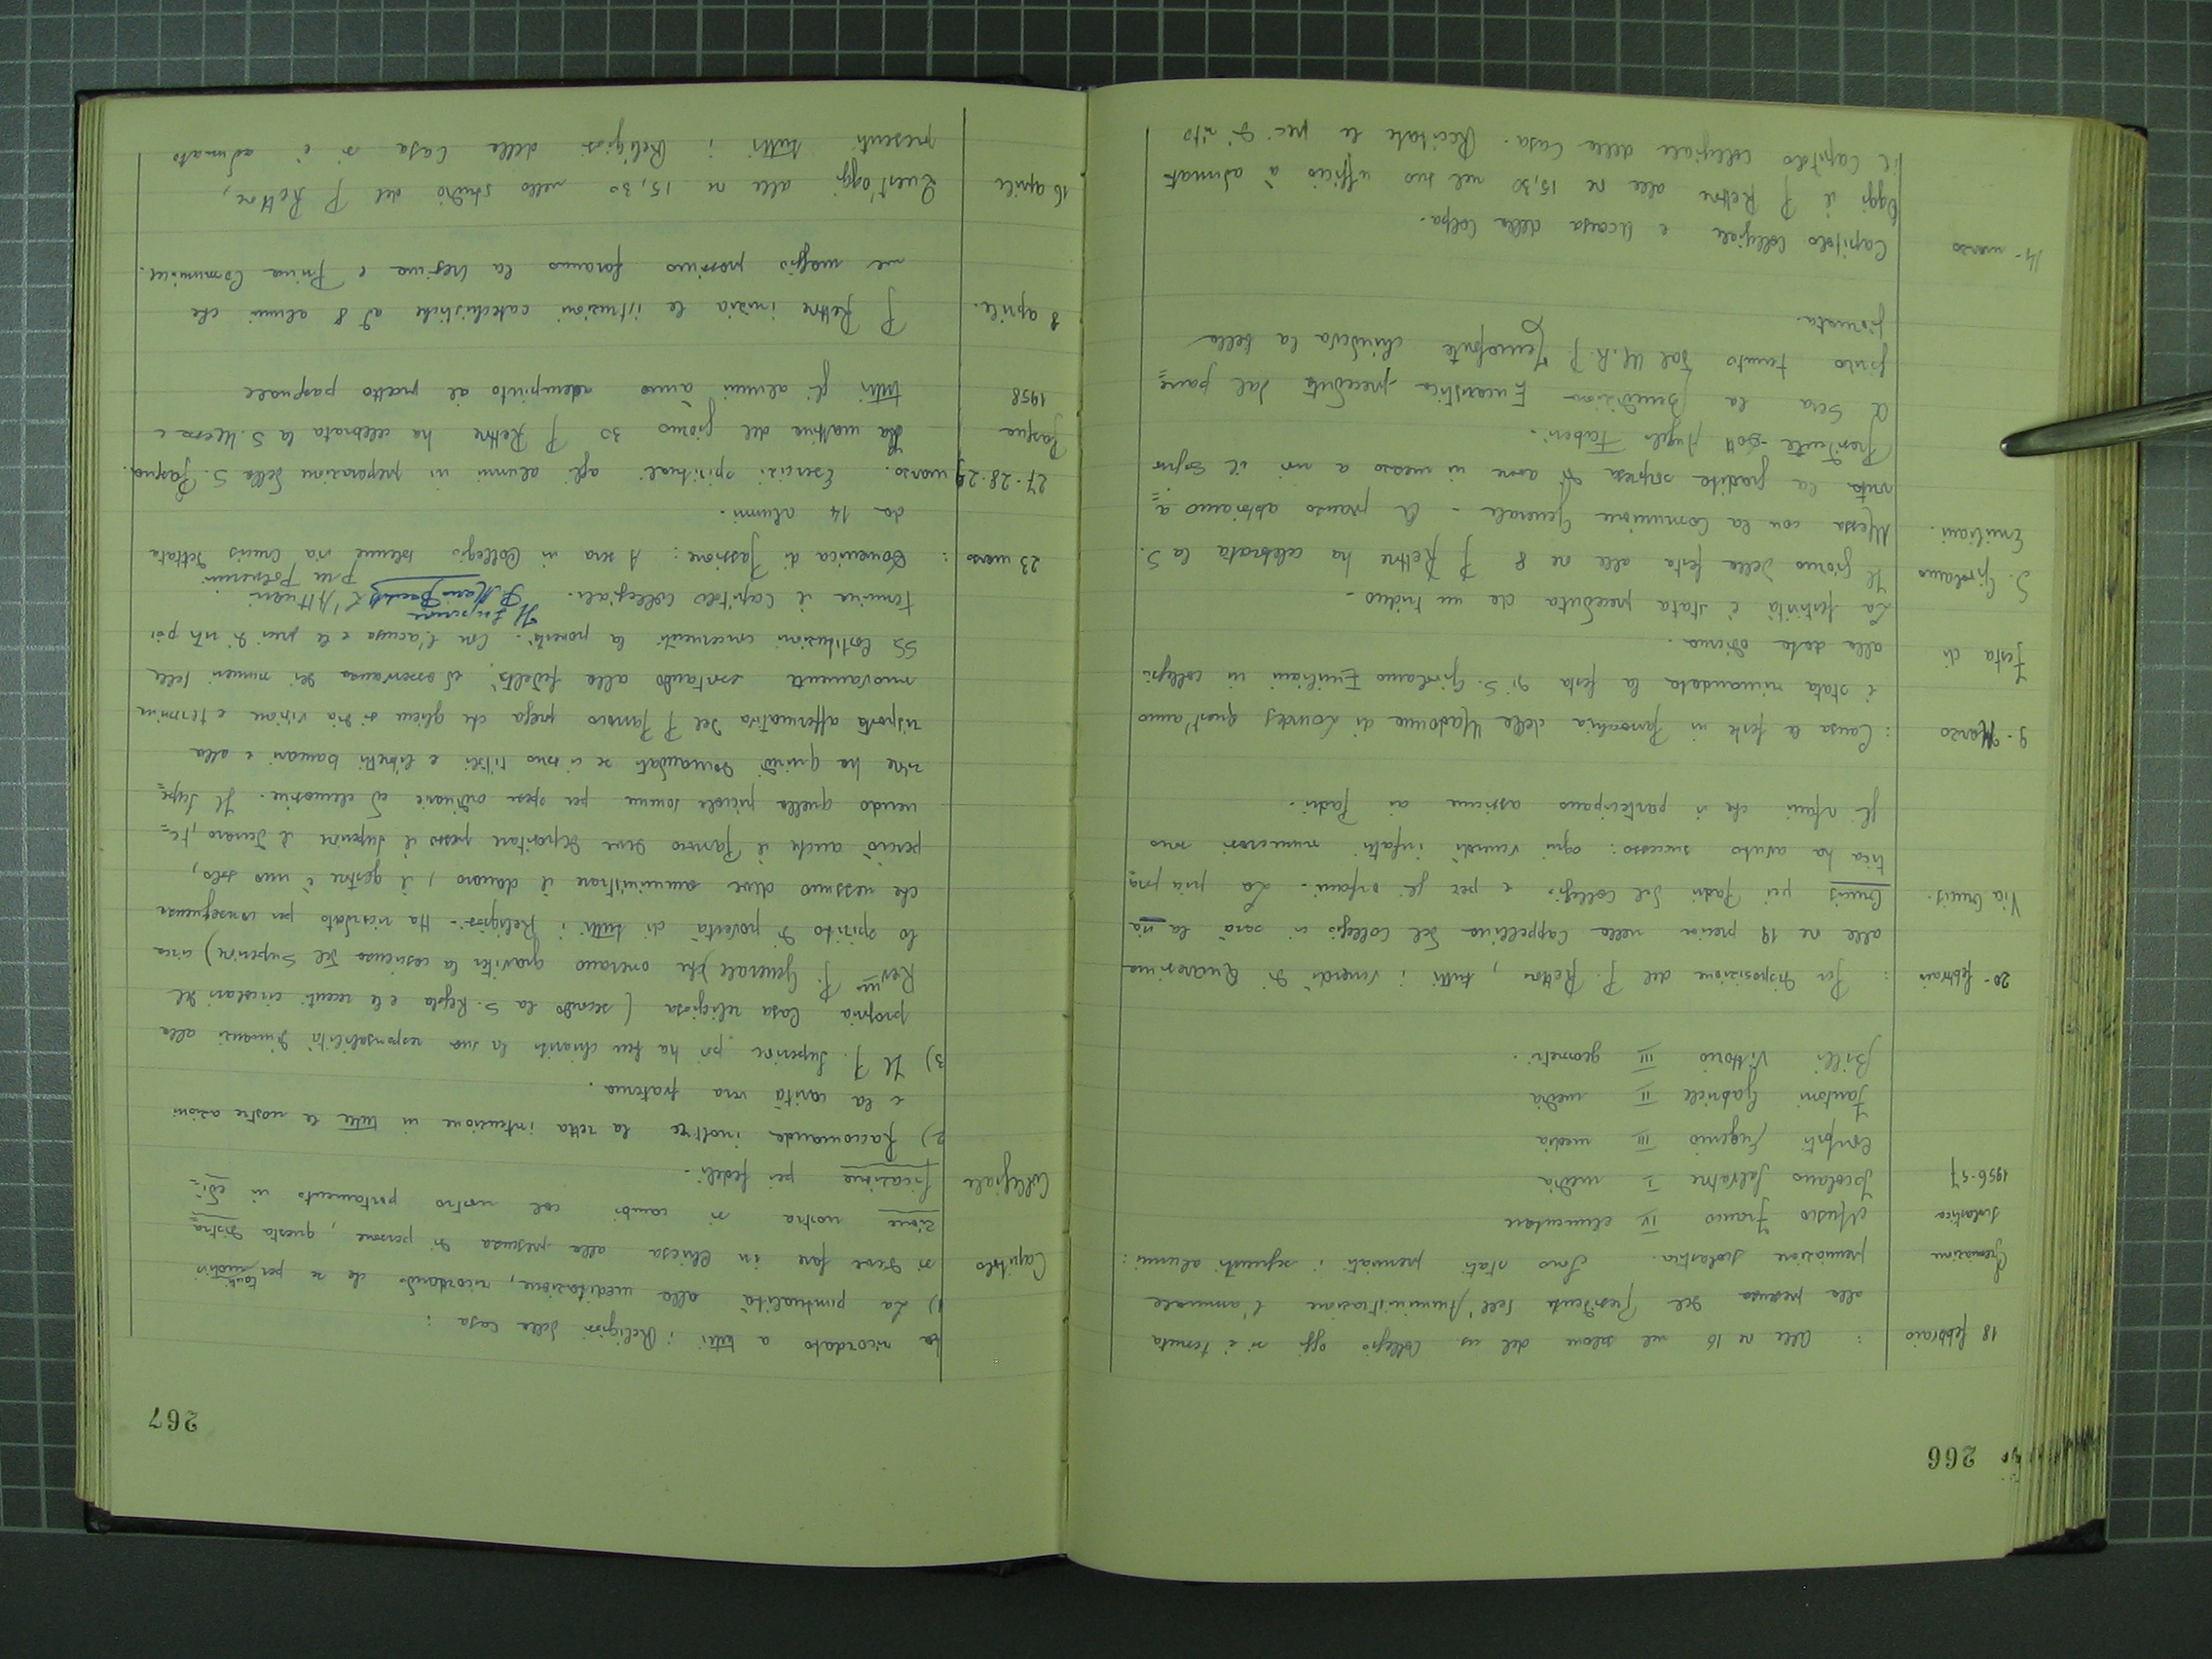 266
18 febbraio : Alle re 16 nel salone del ns. Collegio oggi si è tenuta
alla presenza del Presidente dell'Amministrazione l'annuale
Premiazione premiazione scolastica. Sono stati premiati i seguenti alunni:
scolastica Musio Franco IV elementare
1956-57 Iscolano Salvatore I media
Conforti Eugenio III media
Fantoni Gabriele II media
Billi Vittorio III geometri.
20- febbraio : Per disposizione del P. Rettore, tutti i venerdì di Quaresima
alle re 19 precise nella Cappellina del Collegio ci sarà la via
Via Crucis. Crucis pei Padri del Collegio e per gli orfani. La pia pra
tica ha avuto successo: ogni venerdì infatti numerosi sono
gli orfani che vi partecipano assieme ai Padri.
9- Marzo : Causa le feste in Parrocchia della Madonna di Lourdes quest'anno
è stata rimandata la festa di S. Girolamo Emiliani in collegio
Festa di alla data odierna.
La festività è stata preceduta da un triduo.
S. Girolamo Il giorno della festa alle re 8 P. Rettore ha celebrata la S.
Emiliani. Messa con la Comunione Generale - A pranzo abbiamo a=
vuta la gradita sorpresa di avere in mezzo a noi il Signor
Presidente dott Angelo Fabeni.
A sera la Benedizione Eucaristica preceduta dal pane=
girico tenuto dal M.R.P. Temofonte chiudeva la bella
giornata.
14- marzo Capitolo Collegiale e Accusa della Colpa.
Oggi il P. Rettore alle re 15,30 nel suo ufficio à adunato
il Capitolo collegiale della Casa. Recitate le preci di rito
267
ha ricordato a tutti i Religiosi della Casa :
1) La puntualità alla meditazione, ricordando che se per tanti motivi
Capitolo si deve fare in Chiesa alla presenza di persone, questa distra=
zione nostra si cambi col nostro portamento in edi=
Collegiale ficazione pei fedeli.
2) Raccomanda inoltre la retta intenzione in tutte le nostre azioni
e la carità vera fraterna.
3) Il P. Superiore poi ha ben chiariti la sua responsabilità dinnanzi alla
propria Casa religiosa (secondo la S. Regola e le recenti circolari del
Rev.mo P. Generale) che onerano graviter la coscienza del Superiore) circa
lo spirito di povertà di tutti i Religiosi. Ha ricordato per conseguenza
che nessuno deve amministrare il danaro, il gestore è uno solo,
perciò anche il Parroco deve depositare presso il Superiore il denaro, te=
nendo quella piccola somma per spese ordinarie ed elemosine. Il Supe=
riore ha quindi domandato se vi sono titoli e libretti bancari e alla
risposta affermativa del P. Parroco prega che gliene si dia visione e termina
nuovamente esortando alla fedeltà ed osservanza dei numeri delle
SS Costituzioni concernenti la povertà. Con l'accusa e le preci di rito poi
termina il Capitolo Collegiale.
Il Superiore
L'Attuario
23 marzo : Domenica di Passione: A sera in Collegio solenne via Crucis dettata
da 14 alunni.
27-28-29 marzo. Esercizi spirituali agli alunni in preparazione della S. Pasqua.
Pasqua La mattina del giorno 30 P. Rettore ha celebrata la S. Messa e
1958 tutti gli alunni ànno adempiuto al precetto pasquale
8 aprile. P. Rettore inizia le istruzioni catechistiche ad 8 alunni che
nel maggio prossimo faranno la Cresima e Prima Comunione.
16 aprile Quest'oggi alle re 15,30 nello studio del P. Rettore,
presenti tutti i Religiosi della Casa si è adunato